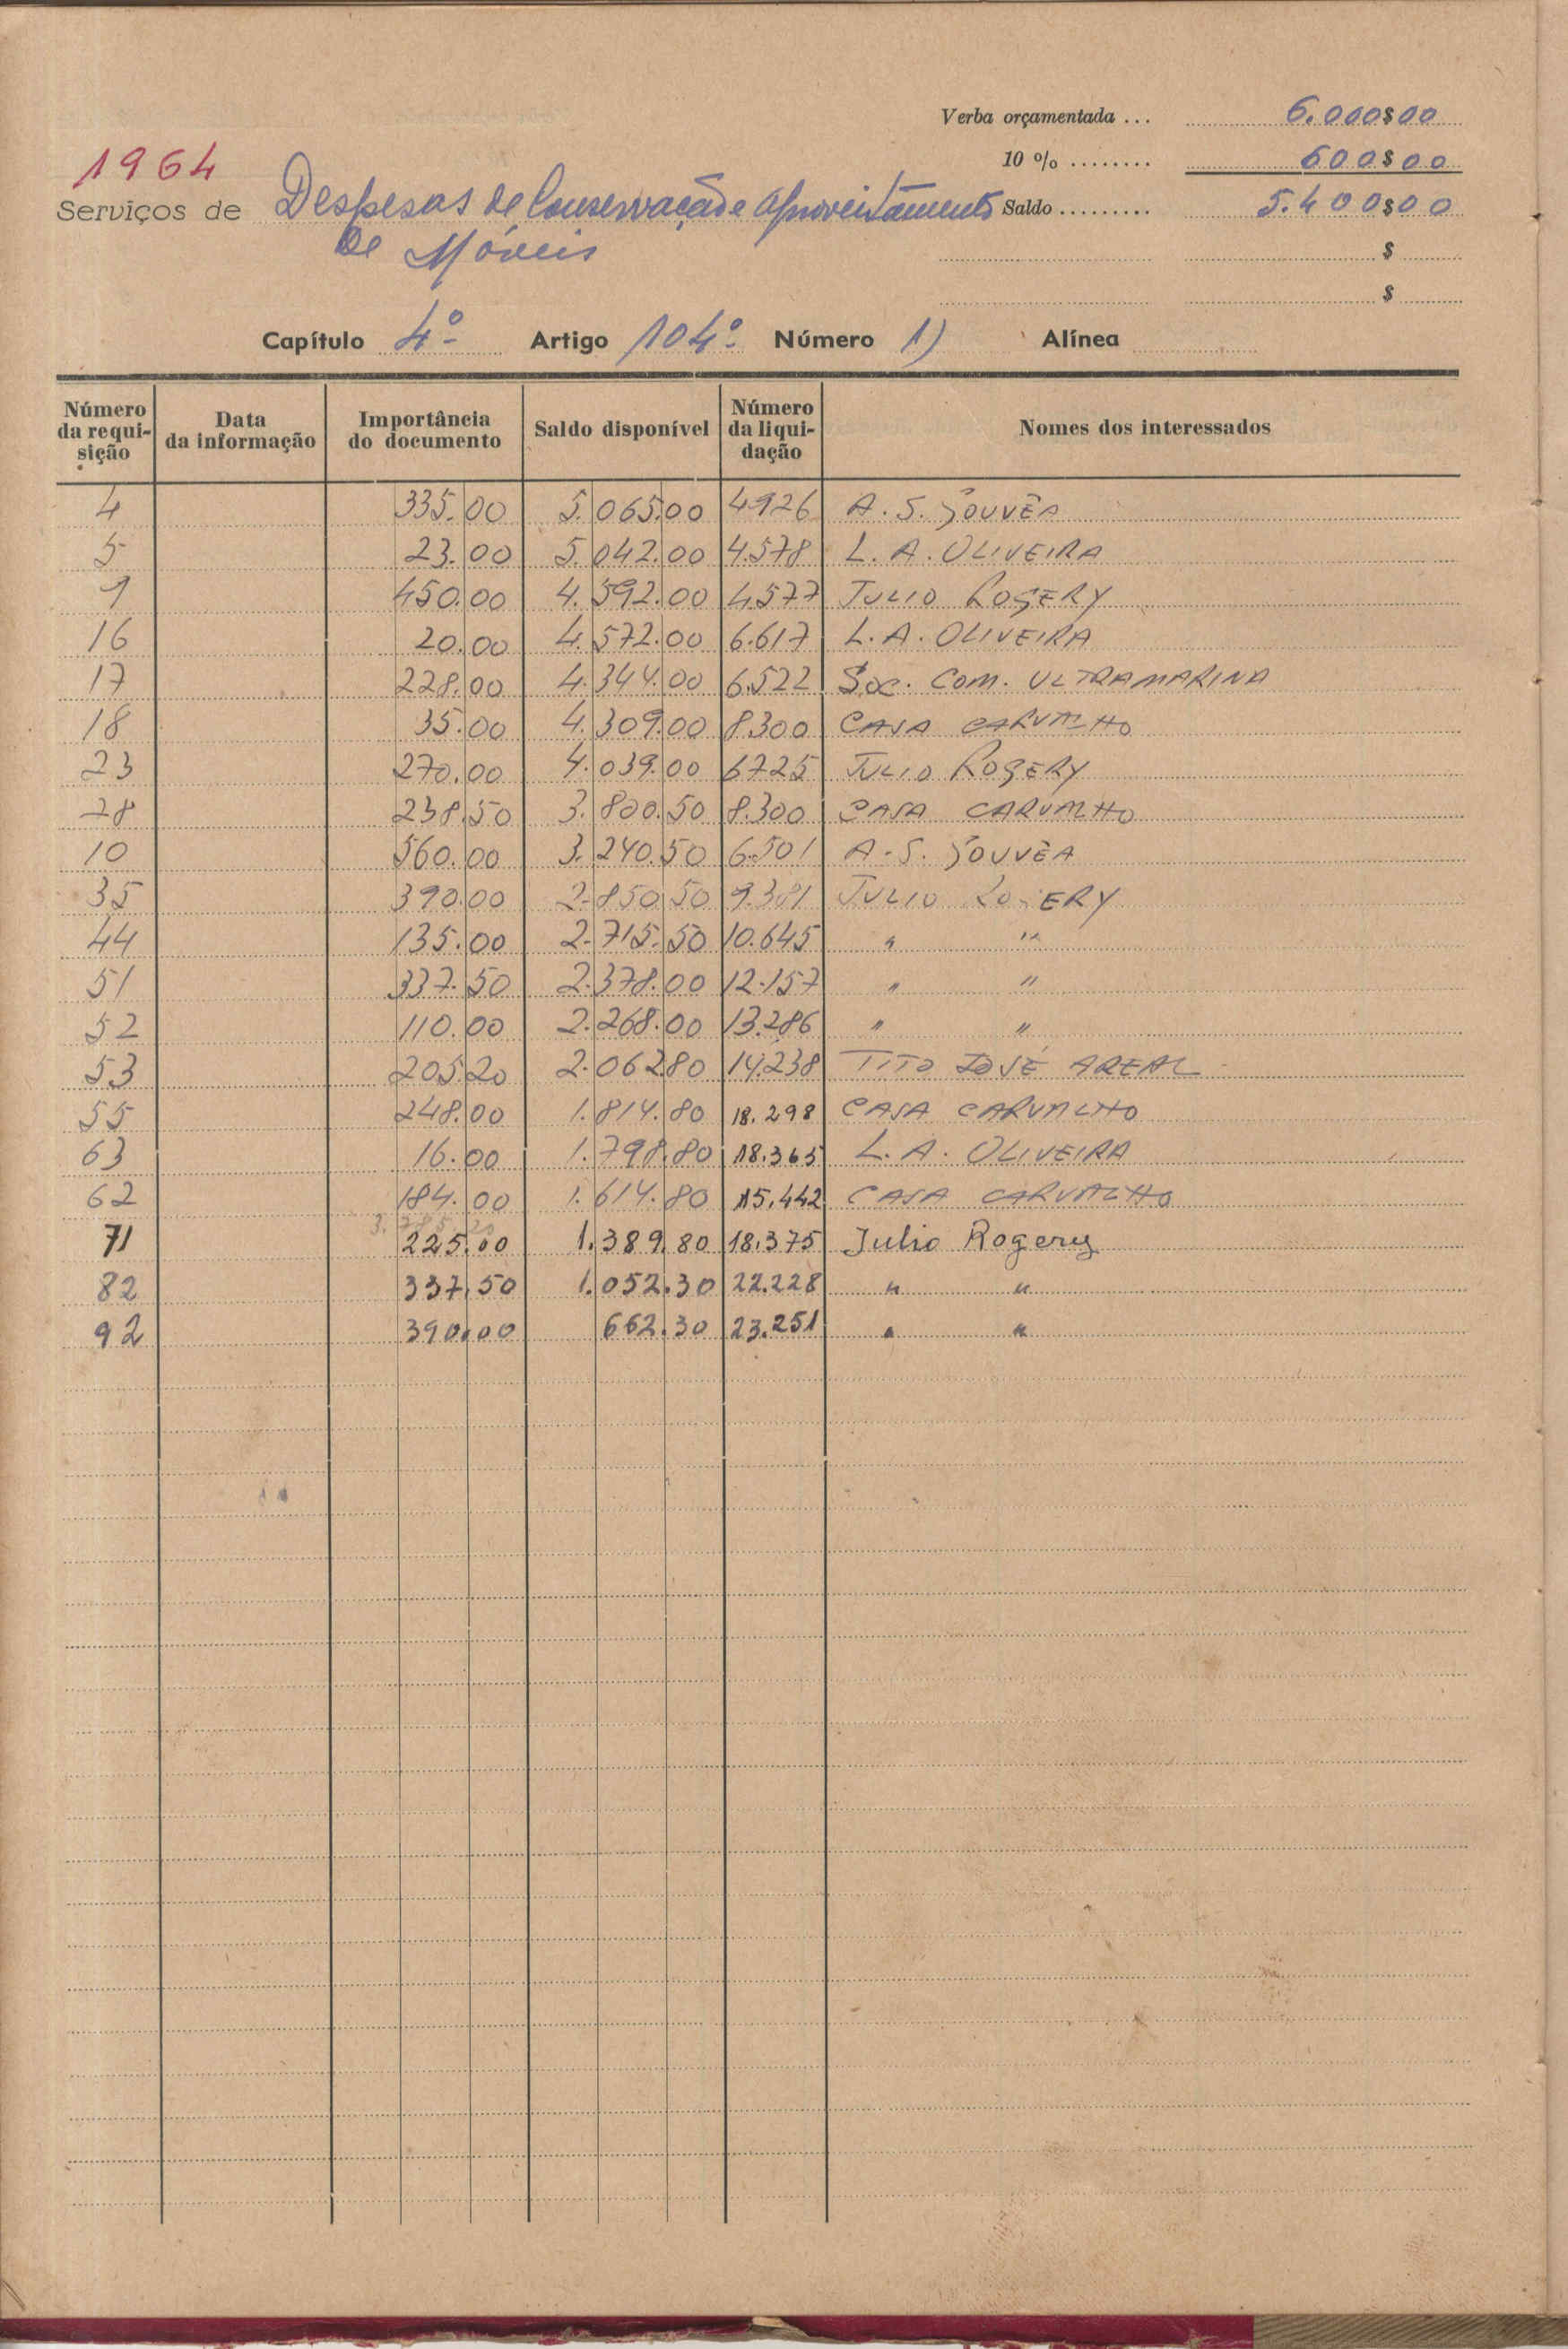 Verba orçamentada ... 6.000$00
1964
10 % ........ 600$00
Serviços de Despesas de Conservação e aproveitamento Saldo ......... 5.400$00
de Móveis
$
$
Capítulo 4º Artigo 104º Número 1) Alínea
Número da requisição Data da informação Importância do documento Saldo disponível Número da liquidação Nomes dos interessados
4 335.00 5.065.00 4926 A. S. GOUVÊA
5 23.00 5.042.00 4.578 L. A. OLIVEIRA
9 450.00 4.592.00 4577 JULIO ROGERY
16 20.00 4.572.00 6.617 L. A. OLIVEIRA
17 228.00 4.344.00 6.522 SOC. COM. ULTRAMARINA
18 35.00 4.309.00 8.300 CASA CARVALHO
23 270.00 4.039.00 6725 JULIO ROGERY
28 238.50 3.800.50 8.300 CASA CARVALHO
10 560.00 3.240.50 6.501 A. S. GOUVÊA
35 390.00 2.850.50 9.381 JULIO ROGERY
44 135.00 2.715.50 10.645 " "
51 337.50 2.378.00 12.157 " "
52 110.00 2.268.00 13.286 " "
53 205.20 2.062.80 14.238 TITO JOSÉ AREAL
55 248.00 1.814.80 18.298 CASA CARVALHO
63 16.00 1.798.80 18.365 L. A. OLIVEIRA
62 184.00 1.614.80 15.442 CASA CARVALHO
3.785.20
71 225.00 1.389.80 18.375 Julio Rogery
82 337.50 1.052.30 22.228 " "
92 390.00 662.30 23.251 " "